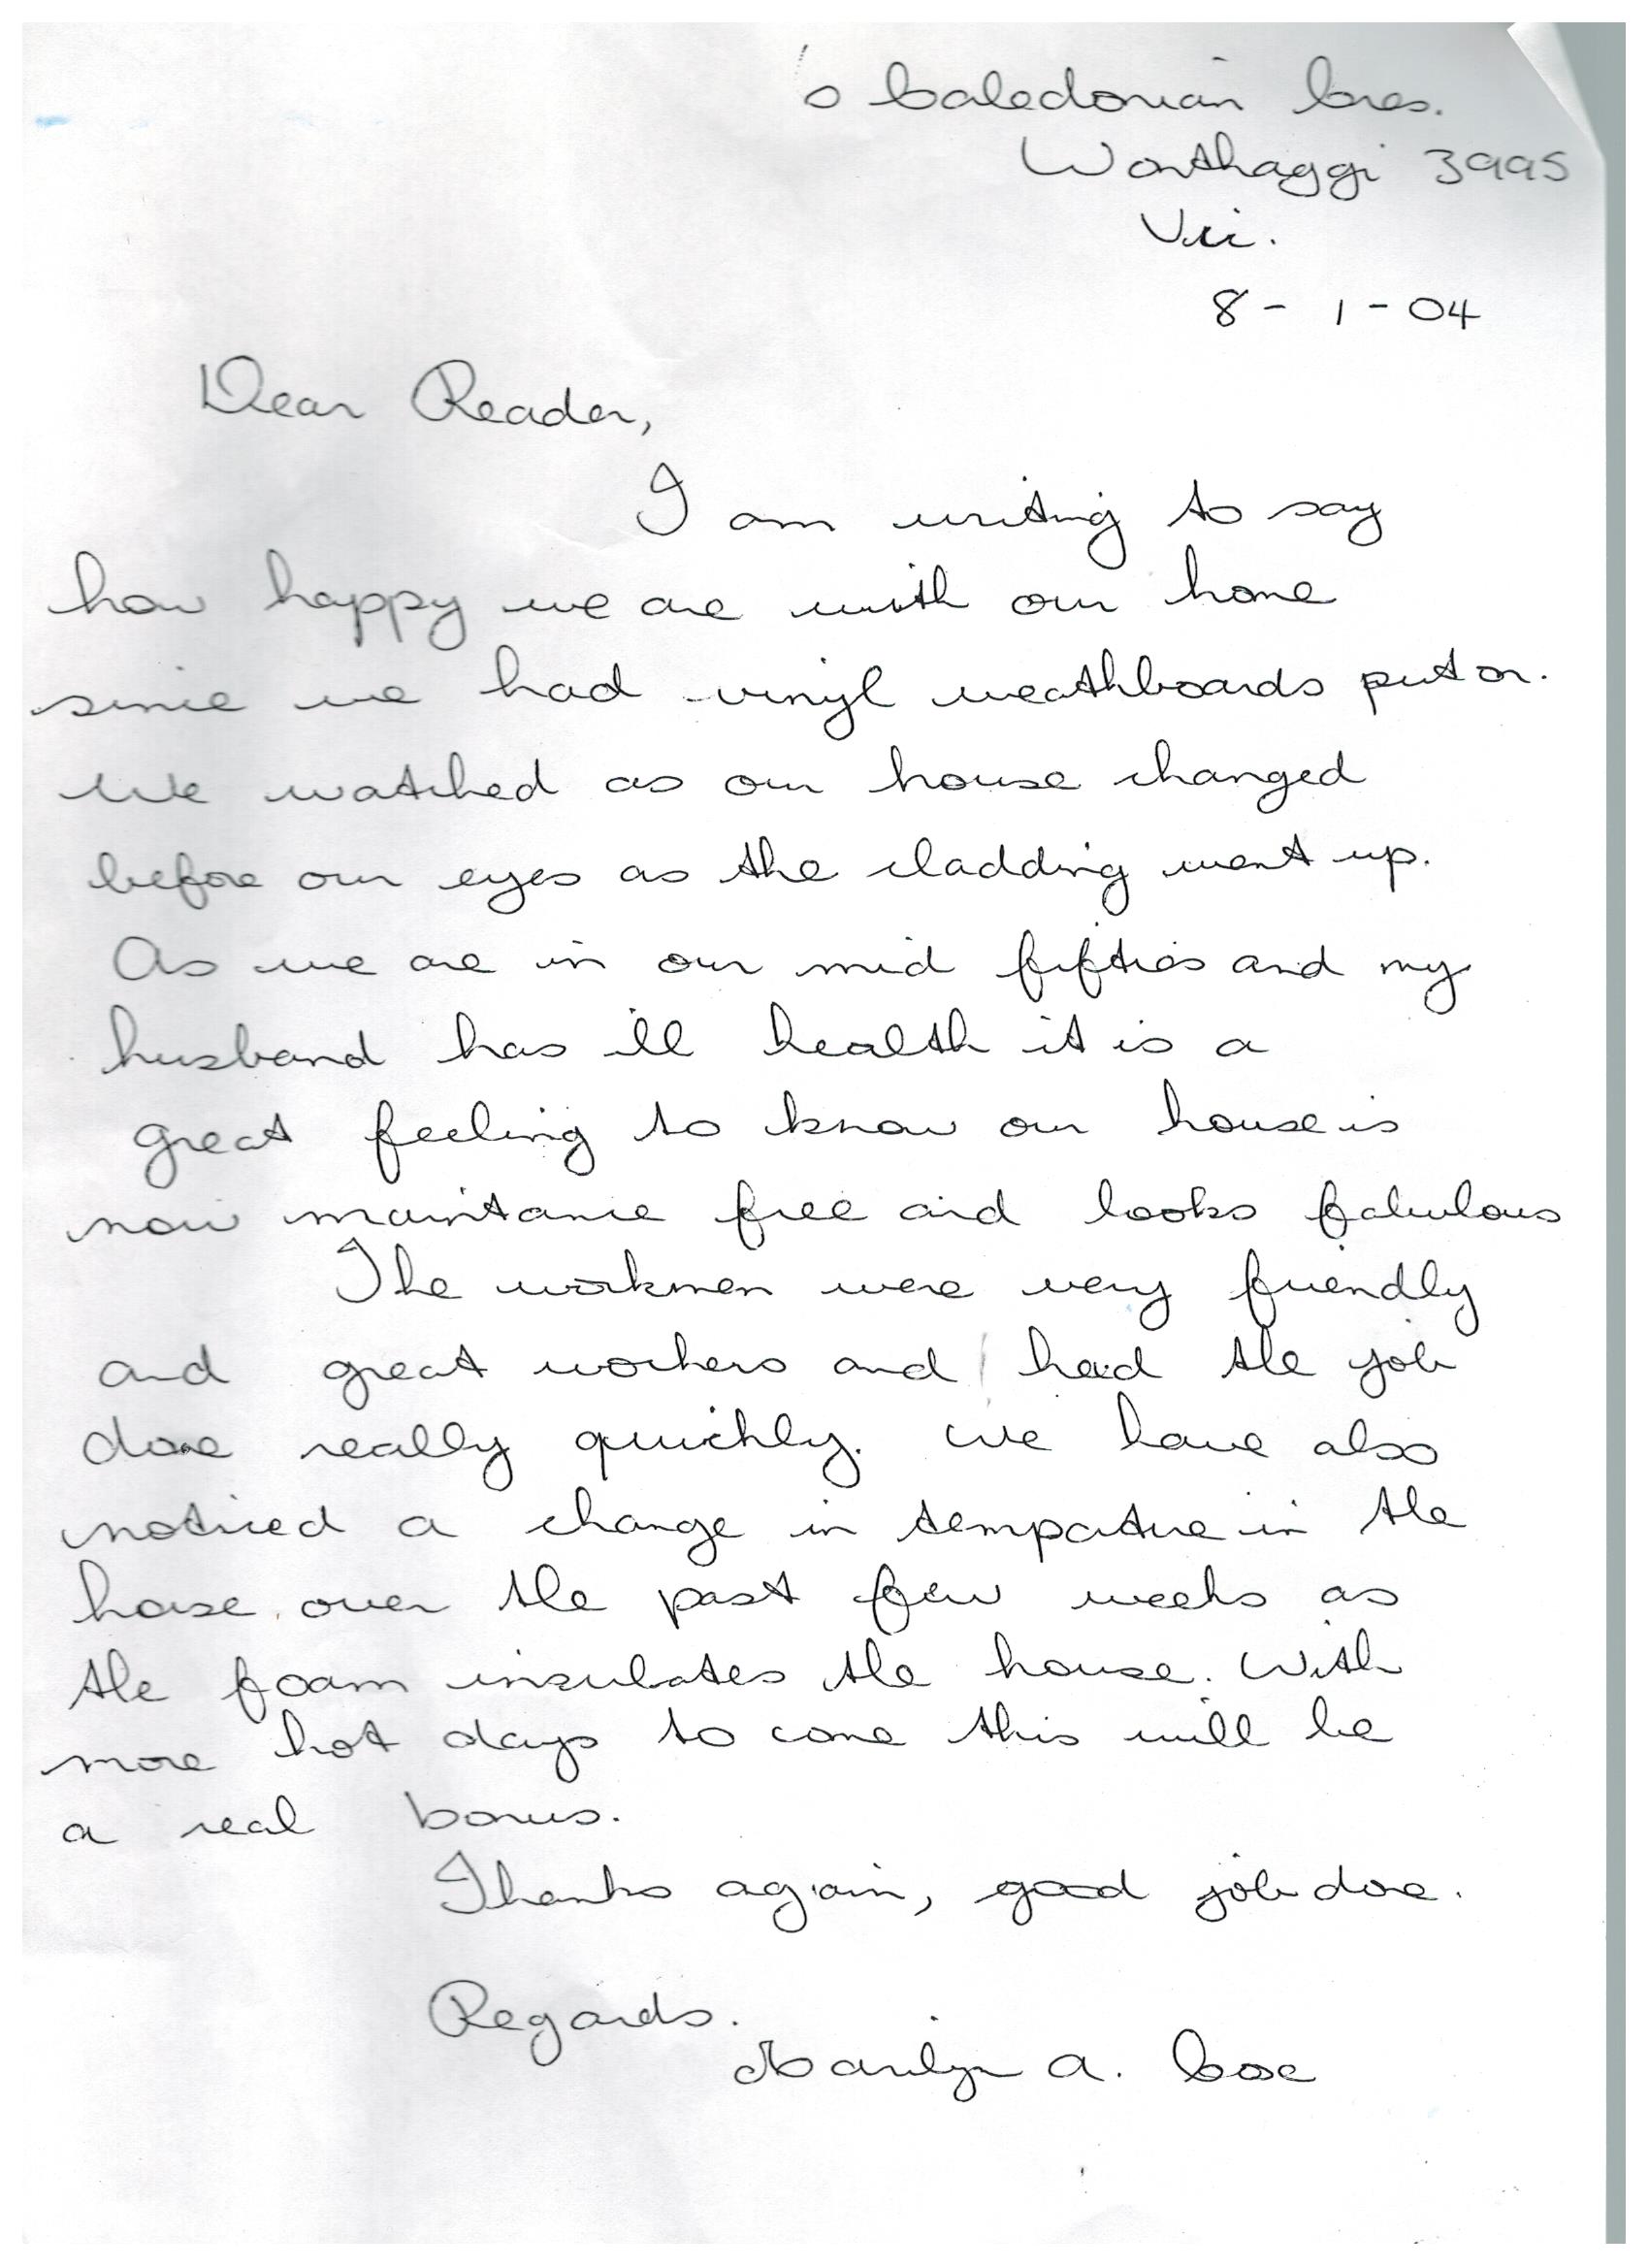 Caledonian Cres.
Wonthaggi 3995
Vic.
8 - 1 - 04
Dear Reader,
I am writing to say
how happy we are with our home
since we had vinyl weathboards put on.
We watched as our house changed
before our eyes as the cladding went up.
As we are in our mid fifties and my
husband has ill health it is a
great feeling to know our house is
now maintance free and looks fabulous
The workmen were very friendly
and great workers and had the job
done really quickly. We have also
noticed a change in tempature in the
house over the past few weeks as
the foam insulates the house. With
more hot days to come this will be
a real bonus.
Thanks again, good job done.
Regards.
Marilyn A.